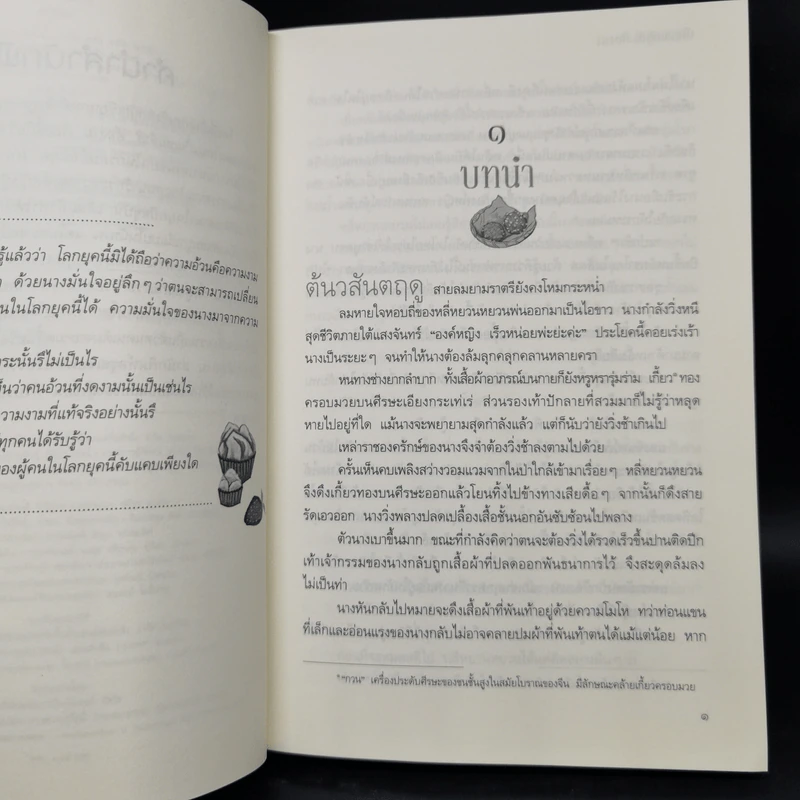 รู้แล้วว่า โลกยุคนี้มิได้ถือว่าความอ้วนคือความงาม
ด้วยนางมั่นใจอยู่ลึกๆ ว่าตนจะสามารถเปลี่ยน
นในโลกยุคนี้ได้ ความมั่นใจของนางมาจากความ
กระนั้นรึไม่เป็นไร
ห็นว่าคนอ้วนที่งดงามนั้นเป็นเช่นไร
ความงามที่แท้จริงอย่างนั้นรึ
ทุกคนได้รับรู้ว่า
ของผู้คนในโลกยุคนี้คับแคบเพียงใด
๑
บทนำ
ต้นวสันตฤดู สายลมยามราตรียังคงโหมกระหน่ำ
ลมหายใจหอบถี่ของหลี่หยวนหยวนพ่นออกมาเป็นไอขาว นางกำลังวิ่งหนี
สุดชีวิตภายใต้แสงจันทร์ “องค์หญิง เร็วหน่อยพ่ะย่ะค่ะ” ประโยคนี้คอยเร่งเร้า
นางเป็นระยะๆ จนทำให้นางต้องล้มลุกคลุกคลานหลายครา
หนทางช่างยากลำบาก ทั้งเสื้อผ้าอาภรณ์บนกายก็ยังหรูหรารุ่มร่าม เกี้ยว*ทอง
ครอบมวยบนศีรษะเอียงกระเท่เร่ ส่วนรองเท้าปักลายที่สวมมาก็ไม่รู้ว่าหลุด
หายไปอยู่ที่ใด แม้นางจะพยายามสุดกำลังแล้ว แต่ก็นับว่ายังวิ่งช้าเกินไป
เหล่าราชองครักษ์ของนางจึงจำต้องวิ่งช้าลงตามไปด้วย
ครั้นเห็นคบเพลิงสว่างวอมแวมจากในป่าใกล้เข้ามาเรื่อยๆ หลี่หยวนหยวน
จึงดึงเกี้ยวทองบนศีรษะออกแล้วโยนทิ้งไปข้างทางเสียดื้อๆ จากนั้นก็ดึงสาย
รัดเอวออก นางวิ่งพลางปลดเปลื้องเสื้อชั้นนอกอันซับซ้อนไปพลาง
ตัวนางเบาขึ้นมาก ขณะที่กำลังคิดว่าตนจะต้องวิ่งได้รวดเร็วขึ้นปานติดปีก
เท้าเจ้ากรรมของนางกลับถูกเสื้อผ้าที่ปลดออกพันธนาการไว้ จึงสะดุดล้มลง
ไม่เป็นท่า
นางหันกลับไปหมายจะดึงเสื้อผ้าที่พันเท้าอยู่ด้วยความโมโห ทว่าท่อนแขน
ที่เล็กและอ่อนแรงของนางกลับไม่อาจคลายปมผ้าที่พันเท้าตนได้แม้แต่น้อย หาก
* “กวน” เครื่องประดับศีรษะของชนชั้นสูงในสมัยโบราณของจีน มีลักษณะคล้ายเกี้ยวครอบมวย
๑